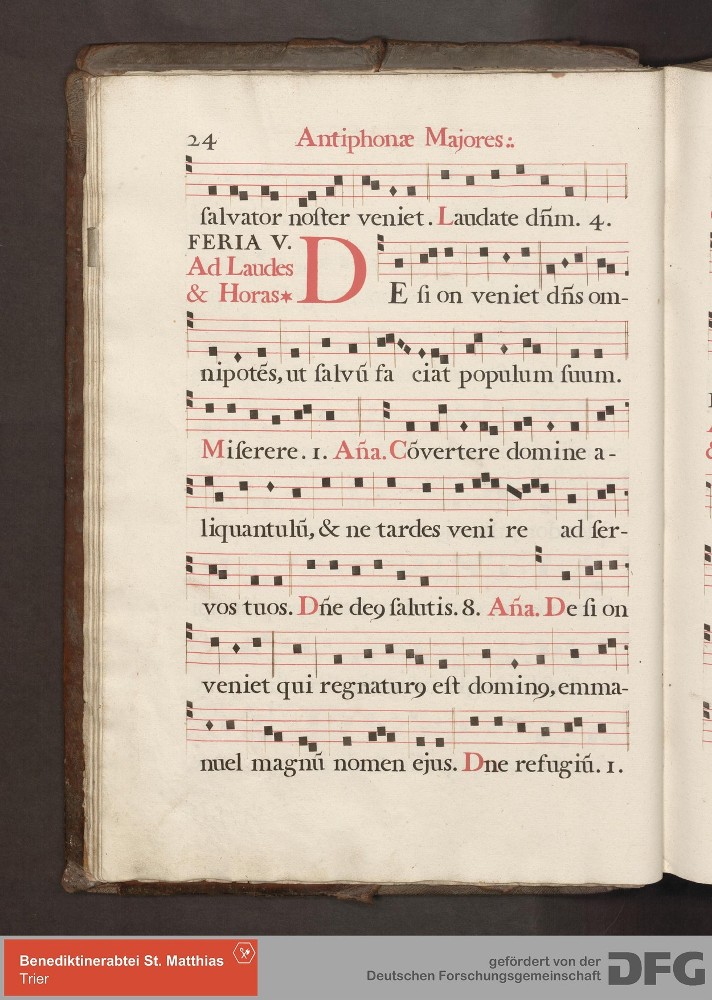 24 Antiphonæ Majores:.
ſalvator noſter veniet. Laudate dn̄m. 4.
FERIA V.
Ad Laudes
& Horas*
DE ſi on veniet dn̄s om-
nipotēs, ut ſalvū fa ciat populum ſuum.
Miſerere. 1. Ana̅. Cōvertere domine a-
liquantulū, & ne tardes veni re ad ſer-
vos tuos. Dn̄e deꝯ ſalutis. 8. Ana̅. De ſi on
veniet qui regnaturꝯ eſt dominꝯ, emma-
nuel magnū nomen ejus. Dne refugiū. 1.
Benediktinerabtei St. Matthias
Trier
gefördert von der
Deutschen Forschungsgemeinschaft
DFG